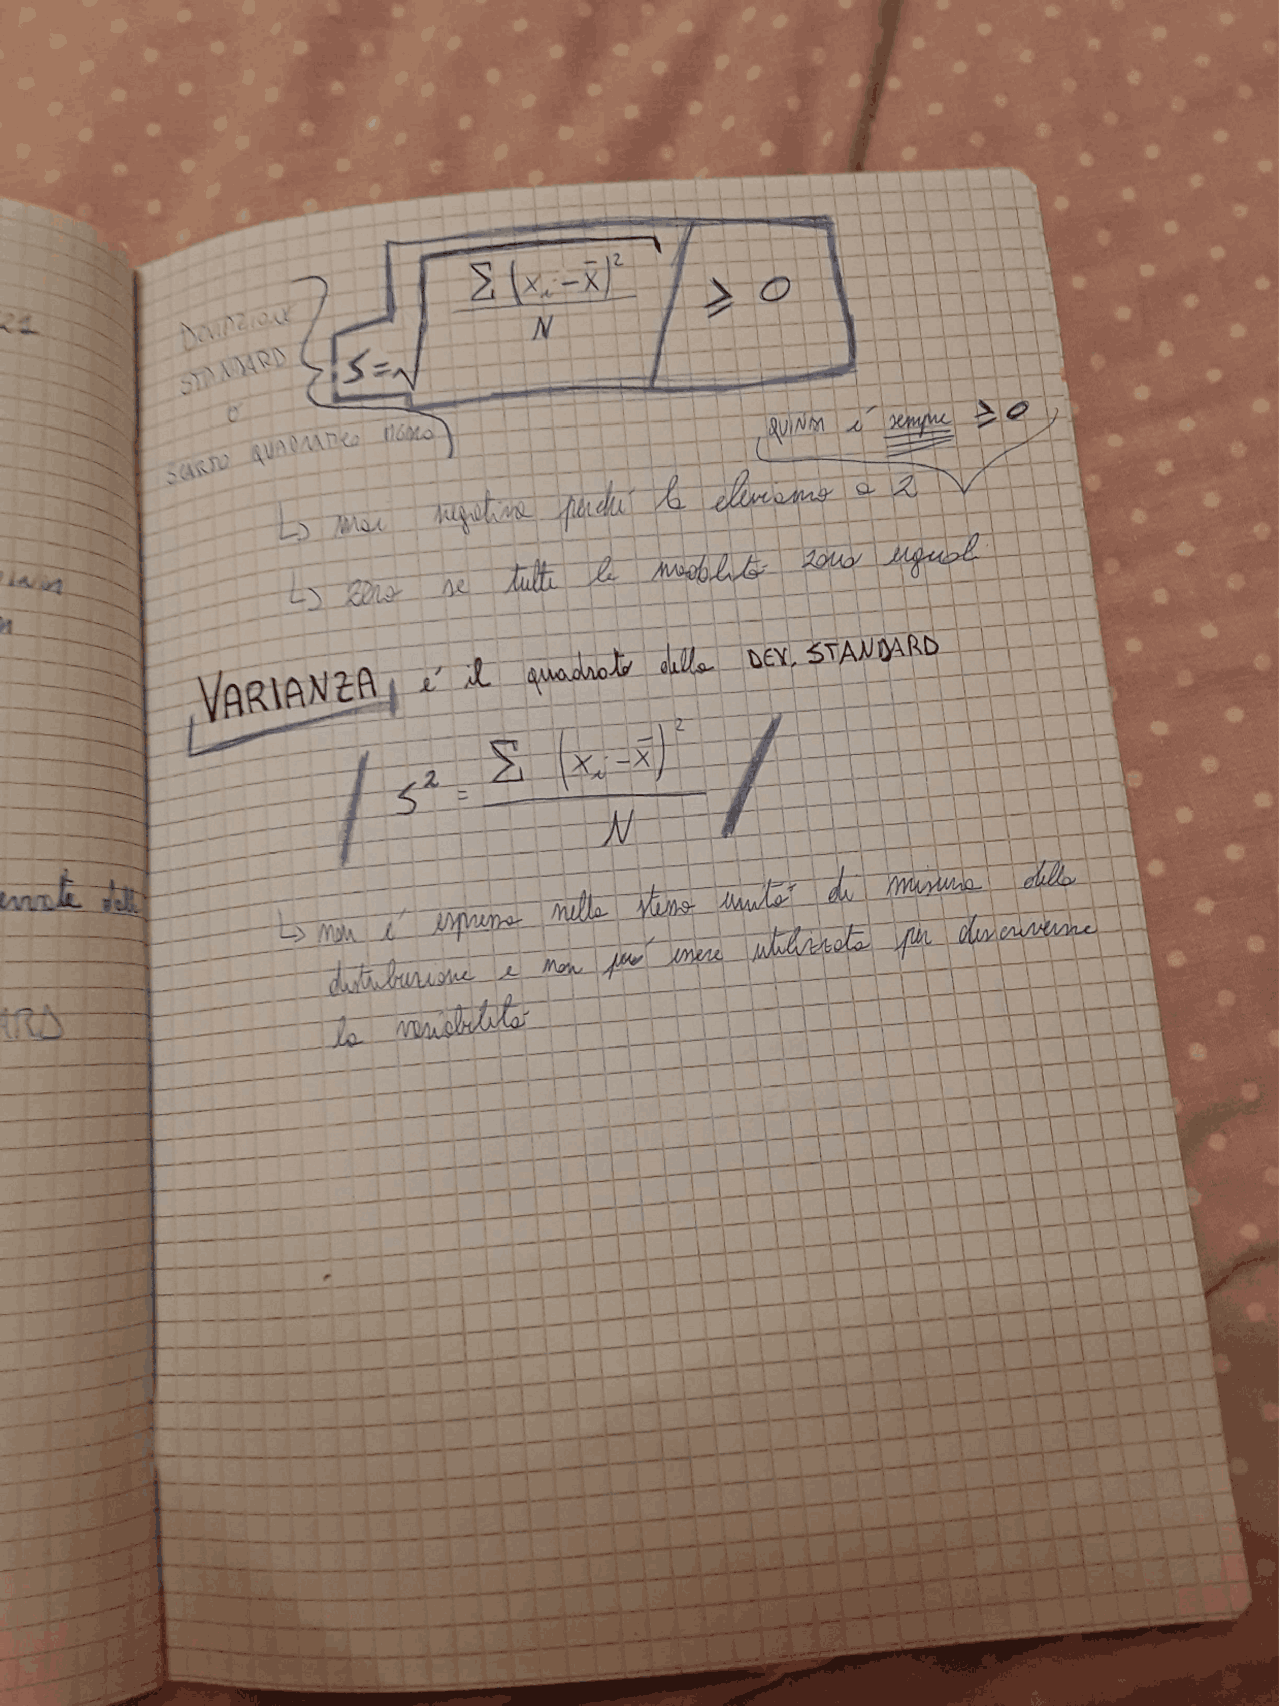 21
DEVIAZIONE
STANDARD
O
SCARTO QUADRATICO MEDIO
S = √ Σ (xi - x̄)² / N ≥ 0
QUINDI é sempre ≥ 0
↳ mai negativa perché la eleviamo a 2
↳ zero se tutte le modalità sono uguali
VARIANZA é il quadrato della DEV. STANDARD
S² = Σ (xi - x̄)² / N
↳ non é espressa nella stessa unità di misura della
distribuzione e non può essere utilizzata per descriverne
la variabilità